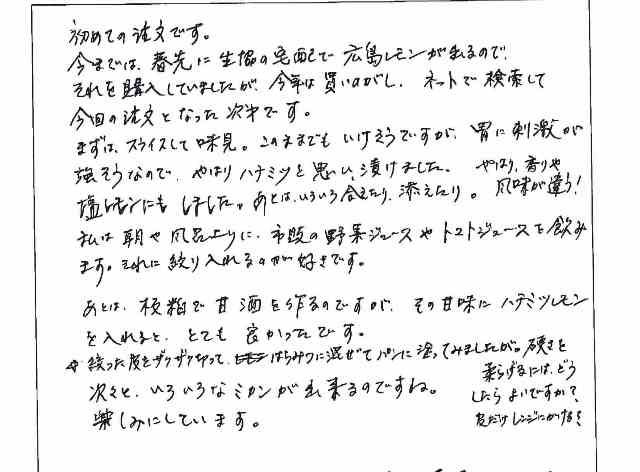 初めての注文です。
今までは、春先に生協の宅配で広島レモンが出るので、
それを購入していましたが、今年は買いのがし、ネットで検索して
今回の注文となった次第です。
まずは、スライスして味見。このままでもいけそうですが、胃に刺激が
強そうなので、やはりハチミツと思い、漬けました。 やはり、香りや
塩レモンにもしました。あとは、いろいろ合えたり、添えたり。 風味が違う!
私は朝や風呂上りに、市販の野菜ジュースやトマトジュースを飲み
ます。それに絞り入れるのが好きです。
あとは、板粕で甘酒を作るのですが、その甘味にハチミツレモン
を入れると、とても良かったです。
絞った皮をザクザク切って、はちみつに混ぜてパンに塗ってみましたが。硬さを
柔らげるには、どう
したらよいですか?
皮だけレンジにかける?
次々と、いろいろなミカンが出来るのですね。
楽しみにしています。